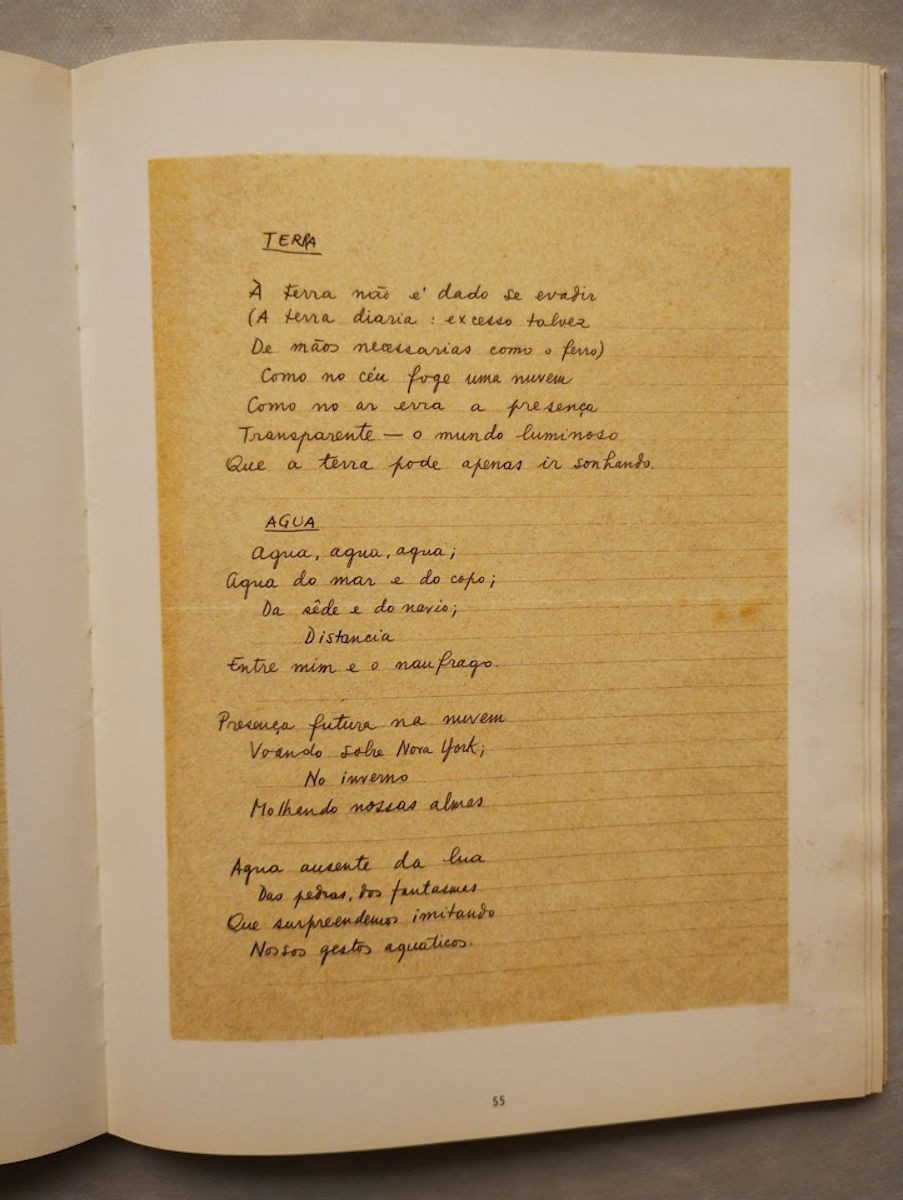 TERRA
À terra não é dado se evadir
(A terra diaria : excesso talvez
De mãos necessarias como o ferro)
Como no céu foge uma nuvem
Como no ar erra a presença
Transparente — o mundo luminoso
Que a terra pode apenas ir sonhando.
AGUA
Agua, agua, agua;
Agua do mar e do copo;
Da sêde e do navio;
Distancia
Entre mim e o naufrago.
Presença futura na nuvem
Voando sobre Nova York;
No inverno
Molhando nossas almas
Agua ausente da lua
Das pedras, dos fantasmas
Que surpreendemos imitando
Nossos gestos aquaticos.
55